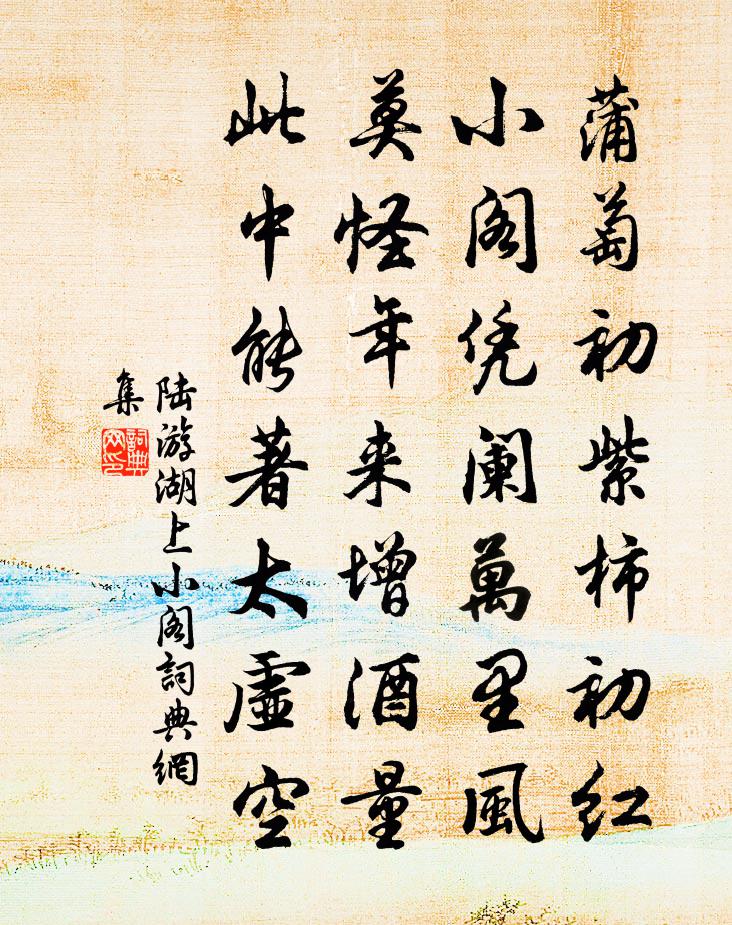 蒲萄初紫柿初红
小阁凭阑萬里風
莫怪年来增酒量
此中能著太虚空
陆游湖上小阁詞典網
集
詞典
网印